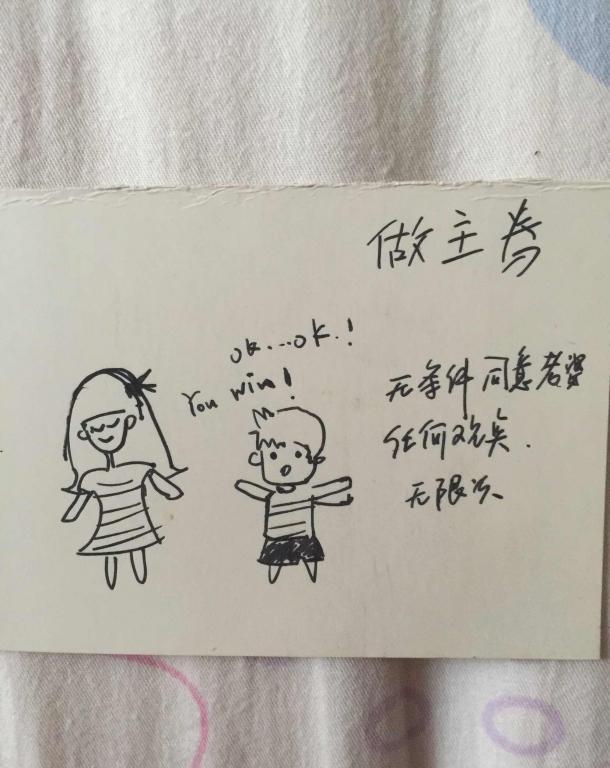 做主券
OK...OK.!
You win!
无条件同意老婆
任何观点.
无限次